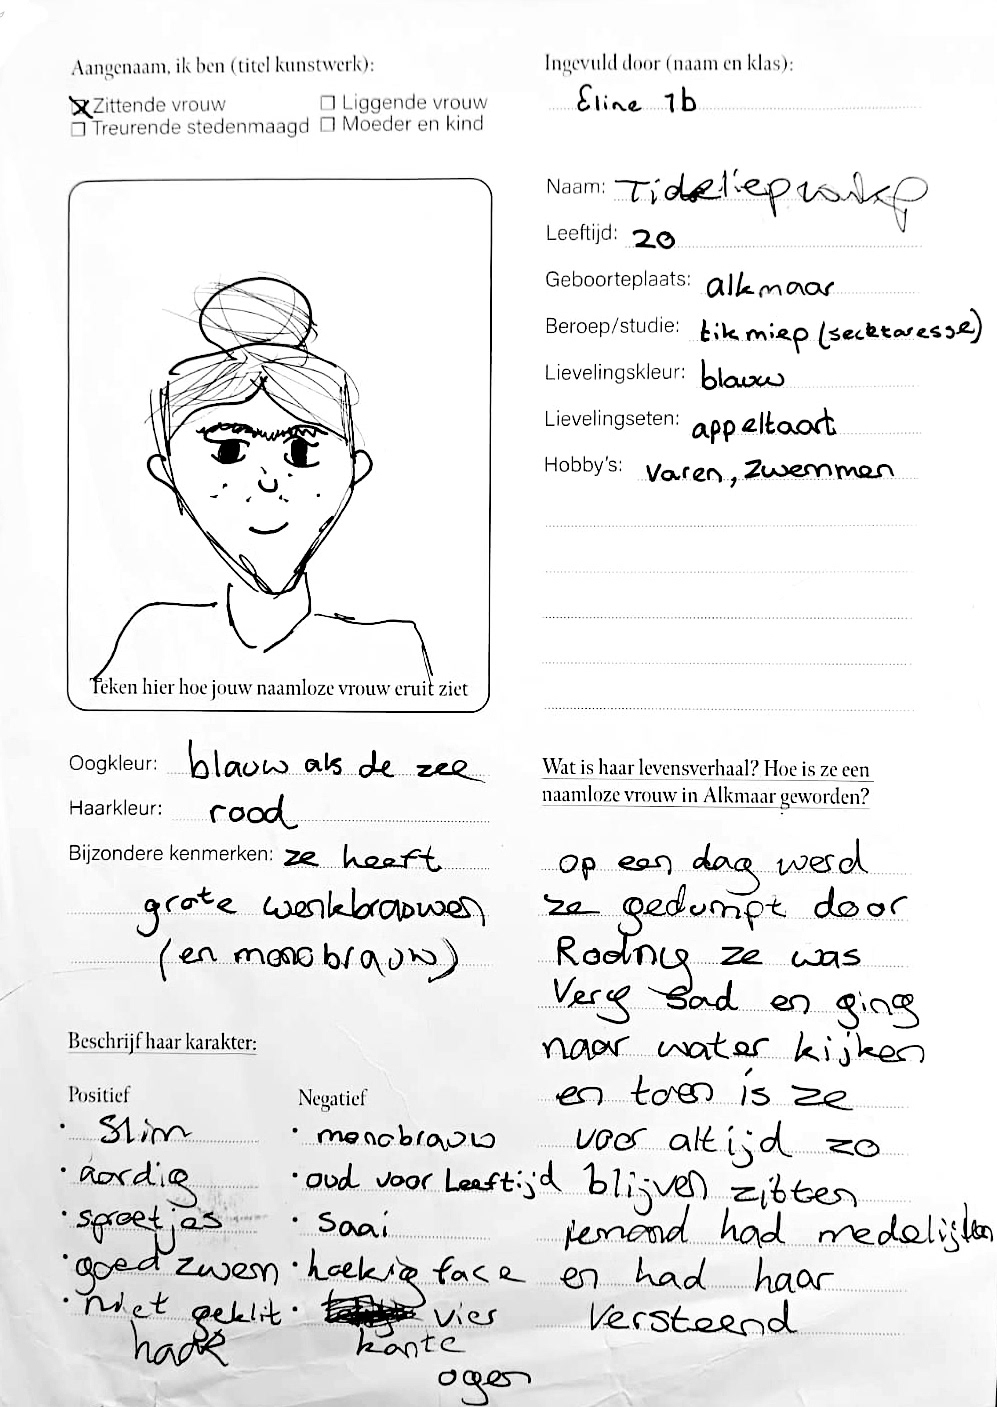 Aangenaam, ik ben (titel kunstwerk):
☒ Zittende vrouw ☐ Liggende vrouw
☐ Treurende stedenmaagd ☐ Moeder en kind
Teken hier hoe jouw naamloze vrouw eruit ziet
Oogkleur: blauw als de zee
Haarkleur: rood
Bijzondere kenmerken: ze heeft
grote wenkbrauwen
(en monobrauw)
Beschrijf haar karakter:
Positief
· Slim
· aardig
· sproetjes
· goed zwem
· niet geklit
haar
Negatief
· monobrauw
· oud voor leeftijd
· Saai
· hoekig face
· vier
kante
ogen
Ingevuld door (naam en klas):
Eline 1b
Naam:
Leeftijd: 20
Geboorteplaats: alkmaar
Beroep/studie: tik miep (secktaresse)
Lievelingskleur: blauw
Lievelingseten: appeltaart
Hobby's: varen, zwemmen
Wat is haar levensverhaal? Hoe is ze een
naamloze vrouw in Alkmaar geworden?
op een dag werd
ze gedumpt door
Rodney ze was
Very sad en ging
naar water kijken
en toen is ze
voor altijd zo
blijven zitten
iemand had medelijden
en had haar
versteend